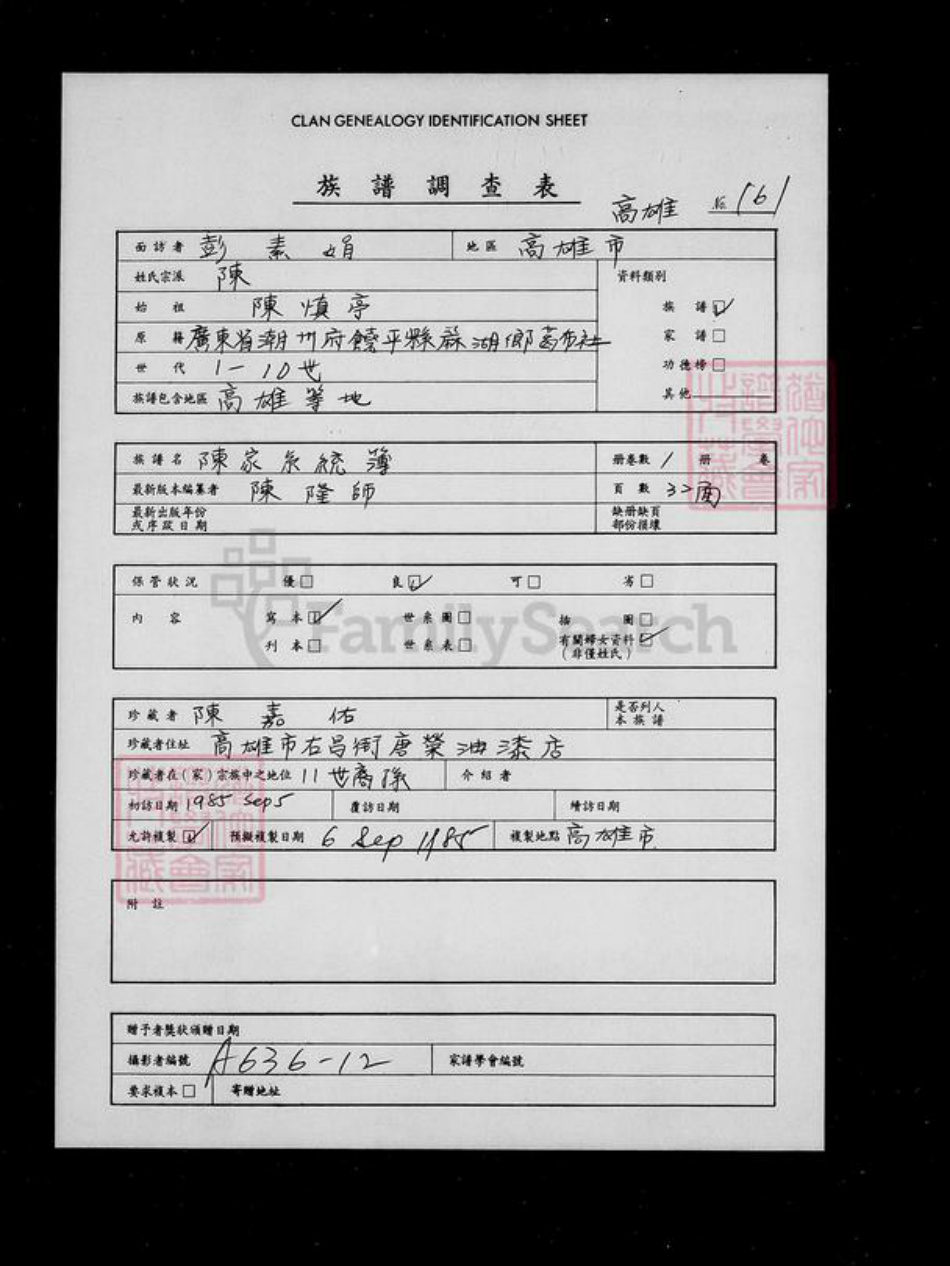 CLAN GENEALOGY IDENTIFICATION SHEET
族譜調查表
高雄 № 161
面訪者 彭素娟 地區 高雄市
姓氏宗派 陳 資料類別
始祖 陳慎亭 族譜☑
原籍 廣東省潮州府饒平縣 湖鄉葛布社 家譜□
世代 1-10世 功德榜□
族譜包含地區 高雄等地 其他
族譜名 陳家系統簿 册卷數 1 册 卷
最新版本編纂者 陳隆師 頁數 32面
最新出版年份或序跋日期 缺册缺頁部份損壞
保管狀況 優□ 良☑ 可□ 劣□
內容 寫本☑ 世系圖□ 插圖□
刊本□ 世系表□ 有關婦女資料☑
(非僅姓氏)
珍藏者 陳嘉佑 是否列入本族譜
珍藏者住址 高雄市右昌街唐榮油漆店
珍藏者在(家)宗族中之地位 11世裔孫 介紹者
初訪日期 1985 Sep 5 覆訪日期 續訪日期
允許複製☑ 預擬複製日期 6 Sep 1985 複製地點 高雄市
附註
贈予者獎狀頒贈日期
攝影者編號 A636-12 家譜學會編號
要求複本□ 寄贈地址
FamilySearch